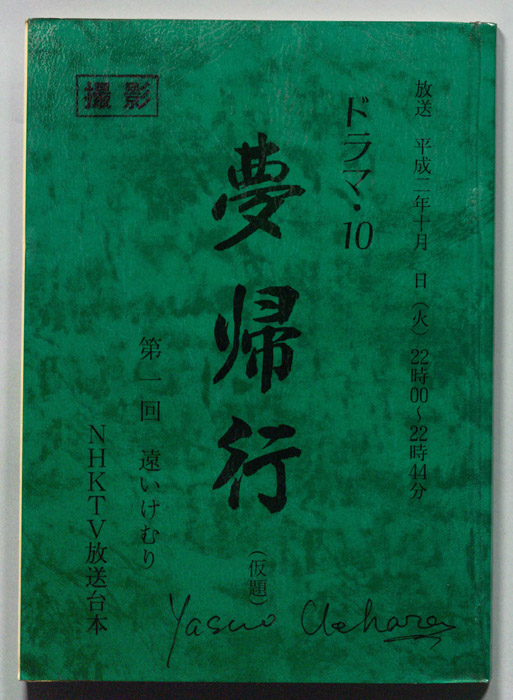 放送　平成二年十月　日（火）22時00〜22時44分
ドラマ・10
夢帰行
（仮題）
第一回　遠いけむり
NHKTV放送台本
撮影
Yasuo Uehara